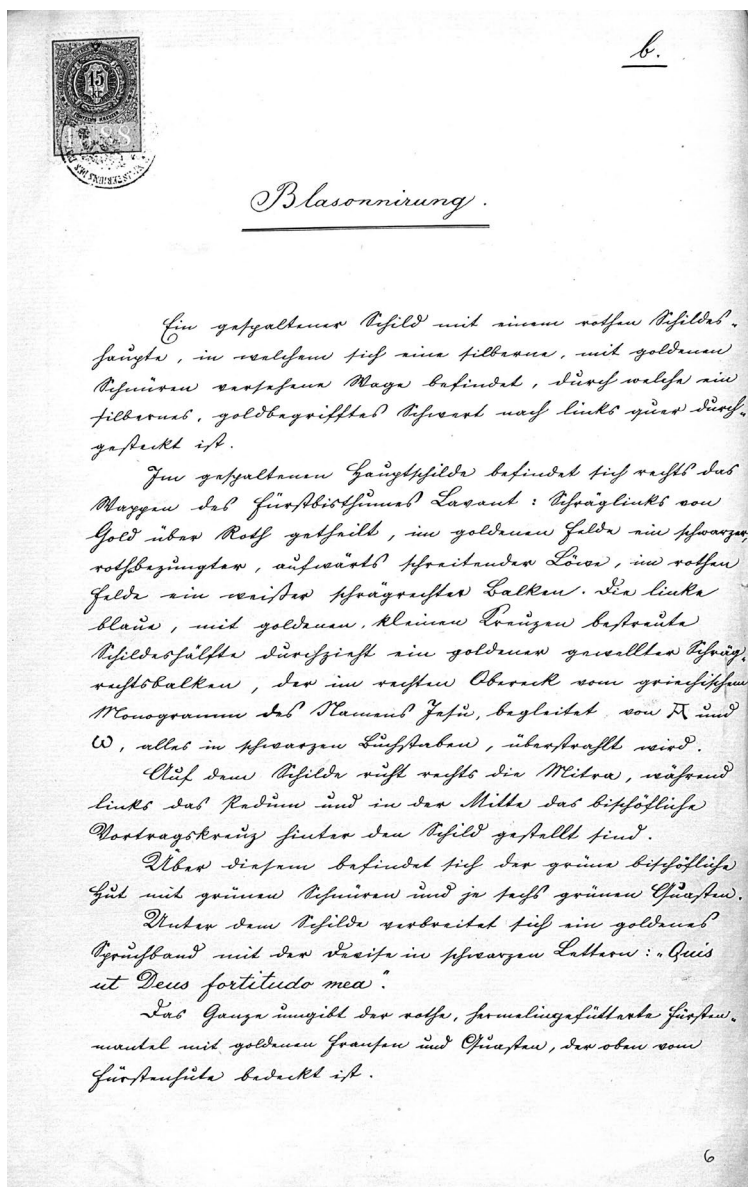 b.
15
Kr.
1888
Blasonnirung.
Ein gespaltener Schild mit einem rothen Schildes-
haupte, in welchem sich eine silberne, mit goldenen
Schnüren versehene Wage befindet, durch welche ein
silbernes, goldbegrifftes Schwert nach links quer durch-
gesteckt ist.
Im gespaltenen Hauptschilde befindet sich rechts das
Wappen des Fürstbisthumes Lavant: Schräglinks von
Gold über Roth getheilt, im goldenen Felde ein schwarzer,
rothbezungter, aufwärts schreitender Löwe, im rothen
Felde ein weißer schrägrechter Balken. Die linke
blaue, mit goldenen, kleinen Kreuzen bestreute
Schildeshälfte durchzieht ein goldener gewellter Schräg-
rechtsbalken, der im rechten Obereck vom griechischen
Monogramm des Namens Jesu, begleitet von A und
ω, alles in schwarzen Buchstaben, überstrahlt wird.
Auf dem Schilde ruht rechts die Mitra, während
links das Pedum und in der Mitte das bischöfliche
Vortragskreuz hinter den Schild gestellt sind.
Über diesem befindet sich der grüne bischöfliche
Hut mit grünen Schnüren und je sechs grünen Quasten.
Unter dem Schilde verbreitet sich ein goldenes
Spruchband mit der Devise in schwarzen Lettern: „Quis
ut Deus fortitudo mea".
Das Ganze umgibt der rothe, hermelingefütterte Fürsten-
mantel mit goldenen Fransen und Quasten, der oben vom
Fürstenhute bedeckt ist.
6